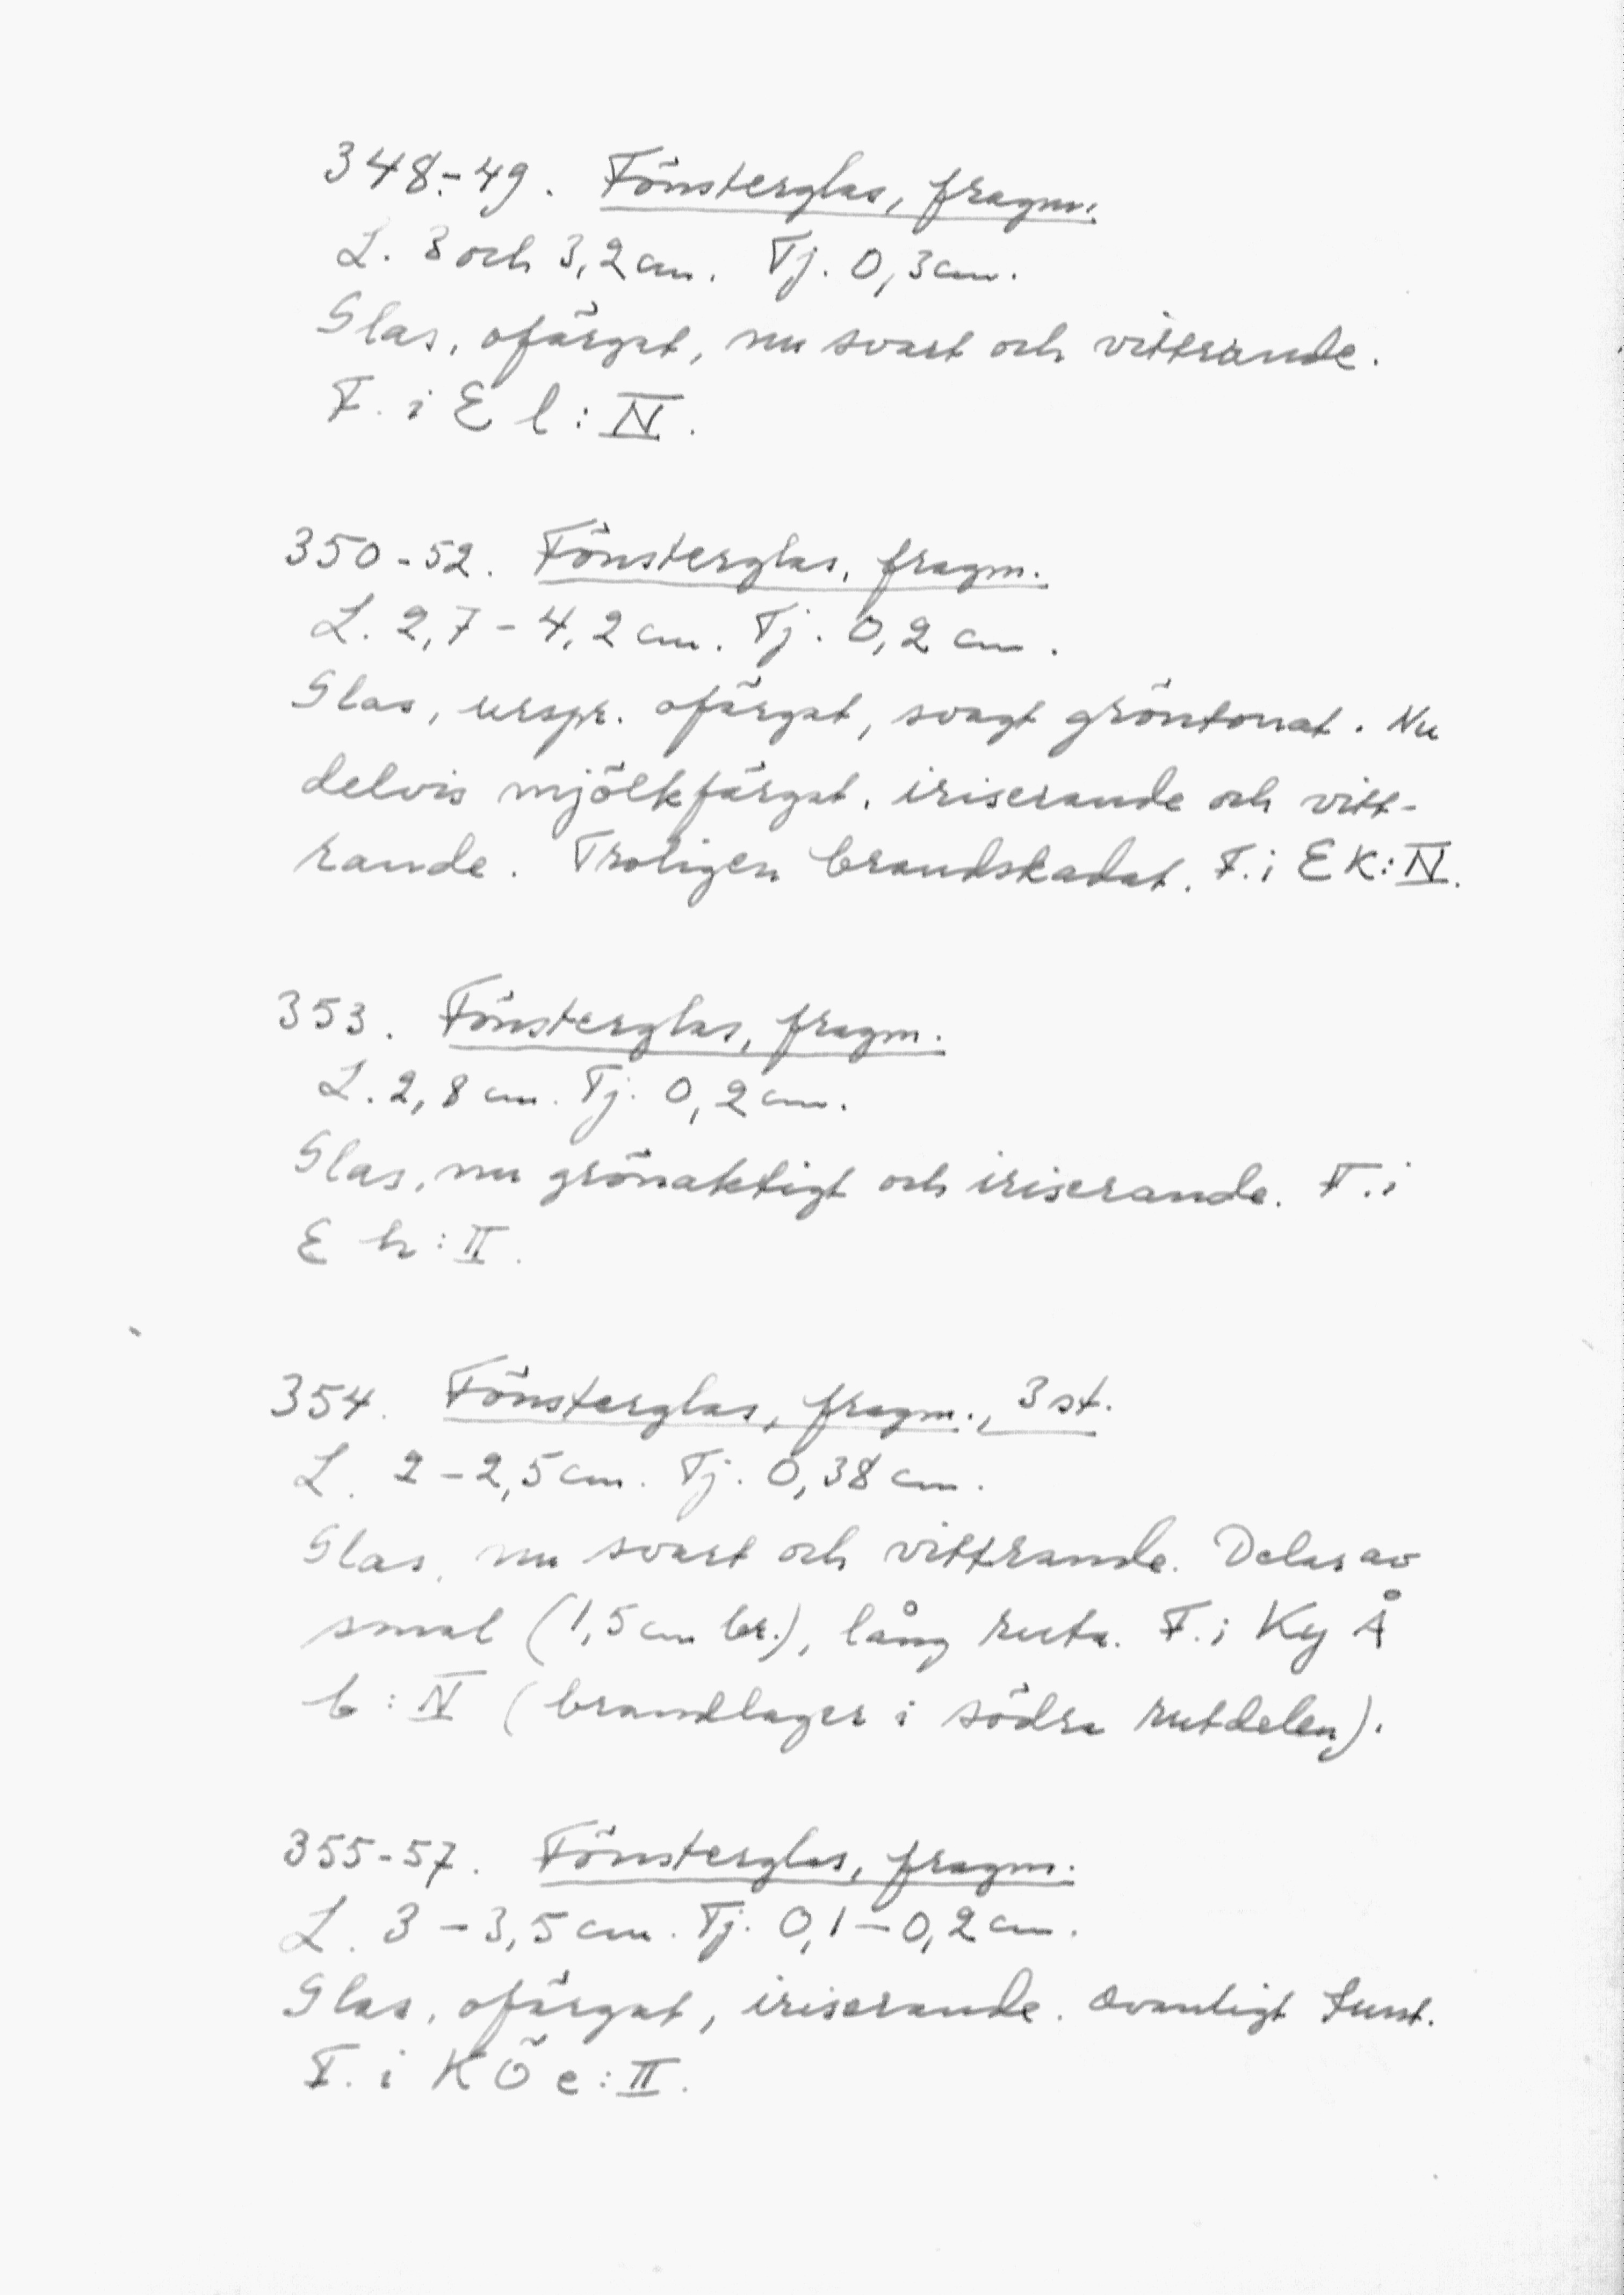 348-49. Fönsterglas, fragm.
L. 3 och 3,2 cm. Tj. 0,3 cm.
Glas, ofärgat, nu svart och vittrande.
F. i E l : IV.
350-52. Fönsterglas, fragm.
L. 2,7 - 4,2 cm. Tj. 0,2 cm.
Glas, urspr. ofärgat, svagt gröntonat. Nu
delvis mjölkfärgat, iriserande och vitt-
rande. Troligen brandskadat. F. i E K : IV.
353. Fönsterglas, fragm.
L. 2,8 cm. Tj. 0,2 cm.
Glas, nu grönaktigt och iriserande. F. i
E h : II.
354. Fönsterglas, fragm., 3 st.
L. 2 - 2,5 cm. Tj. 0,38 cm.
Glas, nu svart och vittrande. Delar av
smal (1,5 cm br.), lång ruta. F. i Ky Å
b : IV (brandlager i södra rutdelen).
355-57. Fönsterglas, fragm.
L. 3 - 3,5 cm. Tj. 0,1 - 0,2 cm.
Glas, ofärgat, iriserande. Ovanligt tunt.
F. i K Ö e : II.